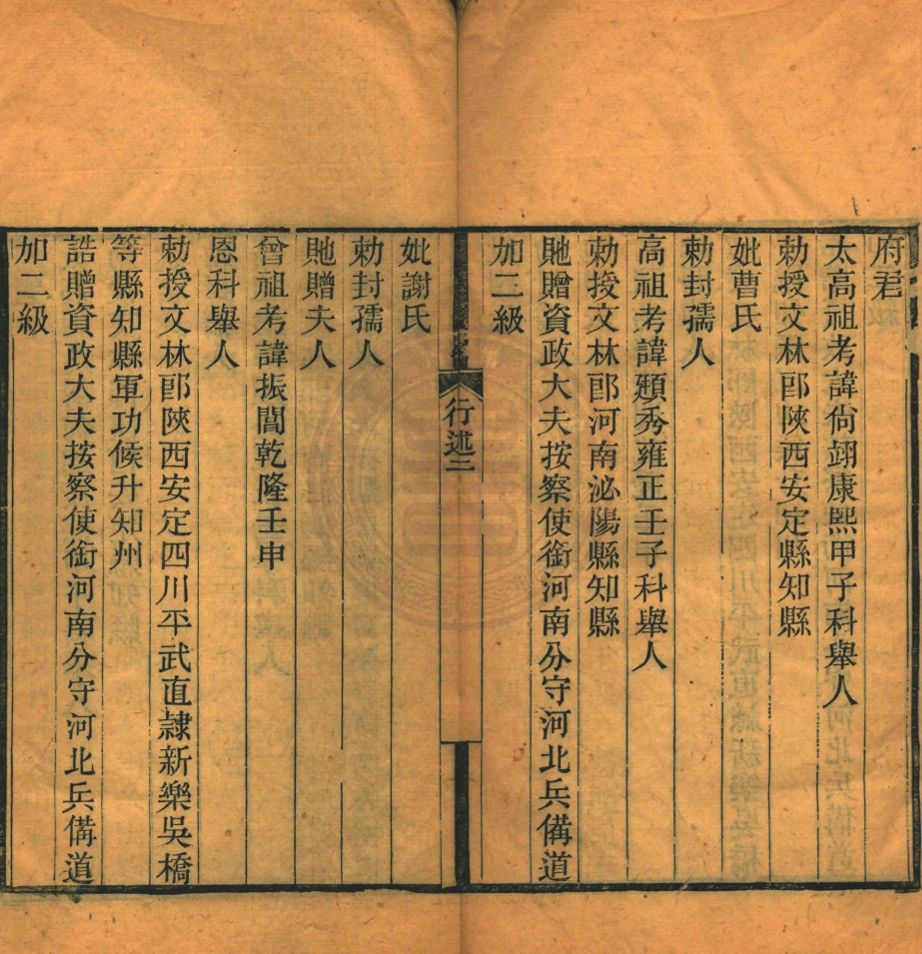 府君
太高祖考諱尙翊康熙甲子科舉人
勅授文林郎陝西安定縣知縣
妣曹氏
勅封孺人
高祖考諱頲秀雍正壬子科舉人
勅授文林郎河南泌陽縣知縣
貤贈資政大夫按察使銜河南分守河北兵備道
加二級
行述二
妣謝氏
勅封孺人
貤贈夫人
曾祖考諱振閶乾隆壬申
恩科舉人
勅授文林郎陝西安定四川平武直隷新樂吳橋
等縣知縣軍功候升知州
誥贈資政大夫按察使銜河南分守河北兵備道
加二級